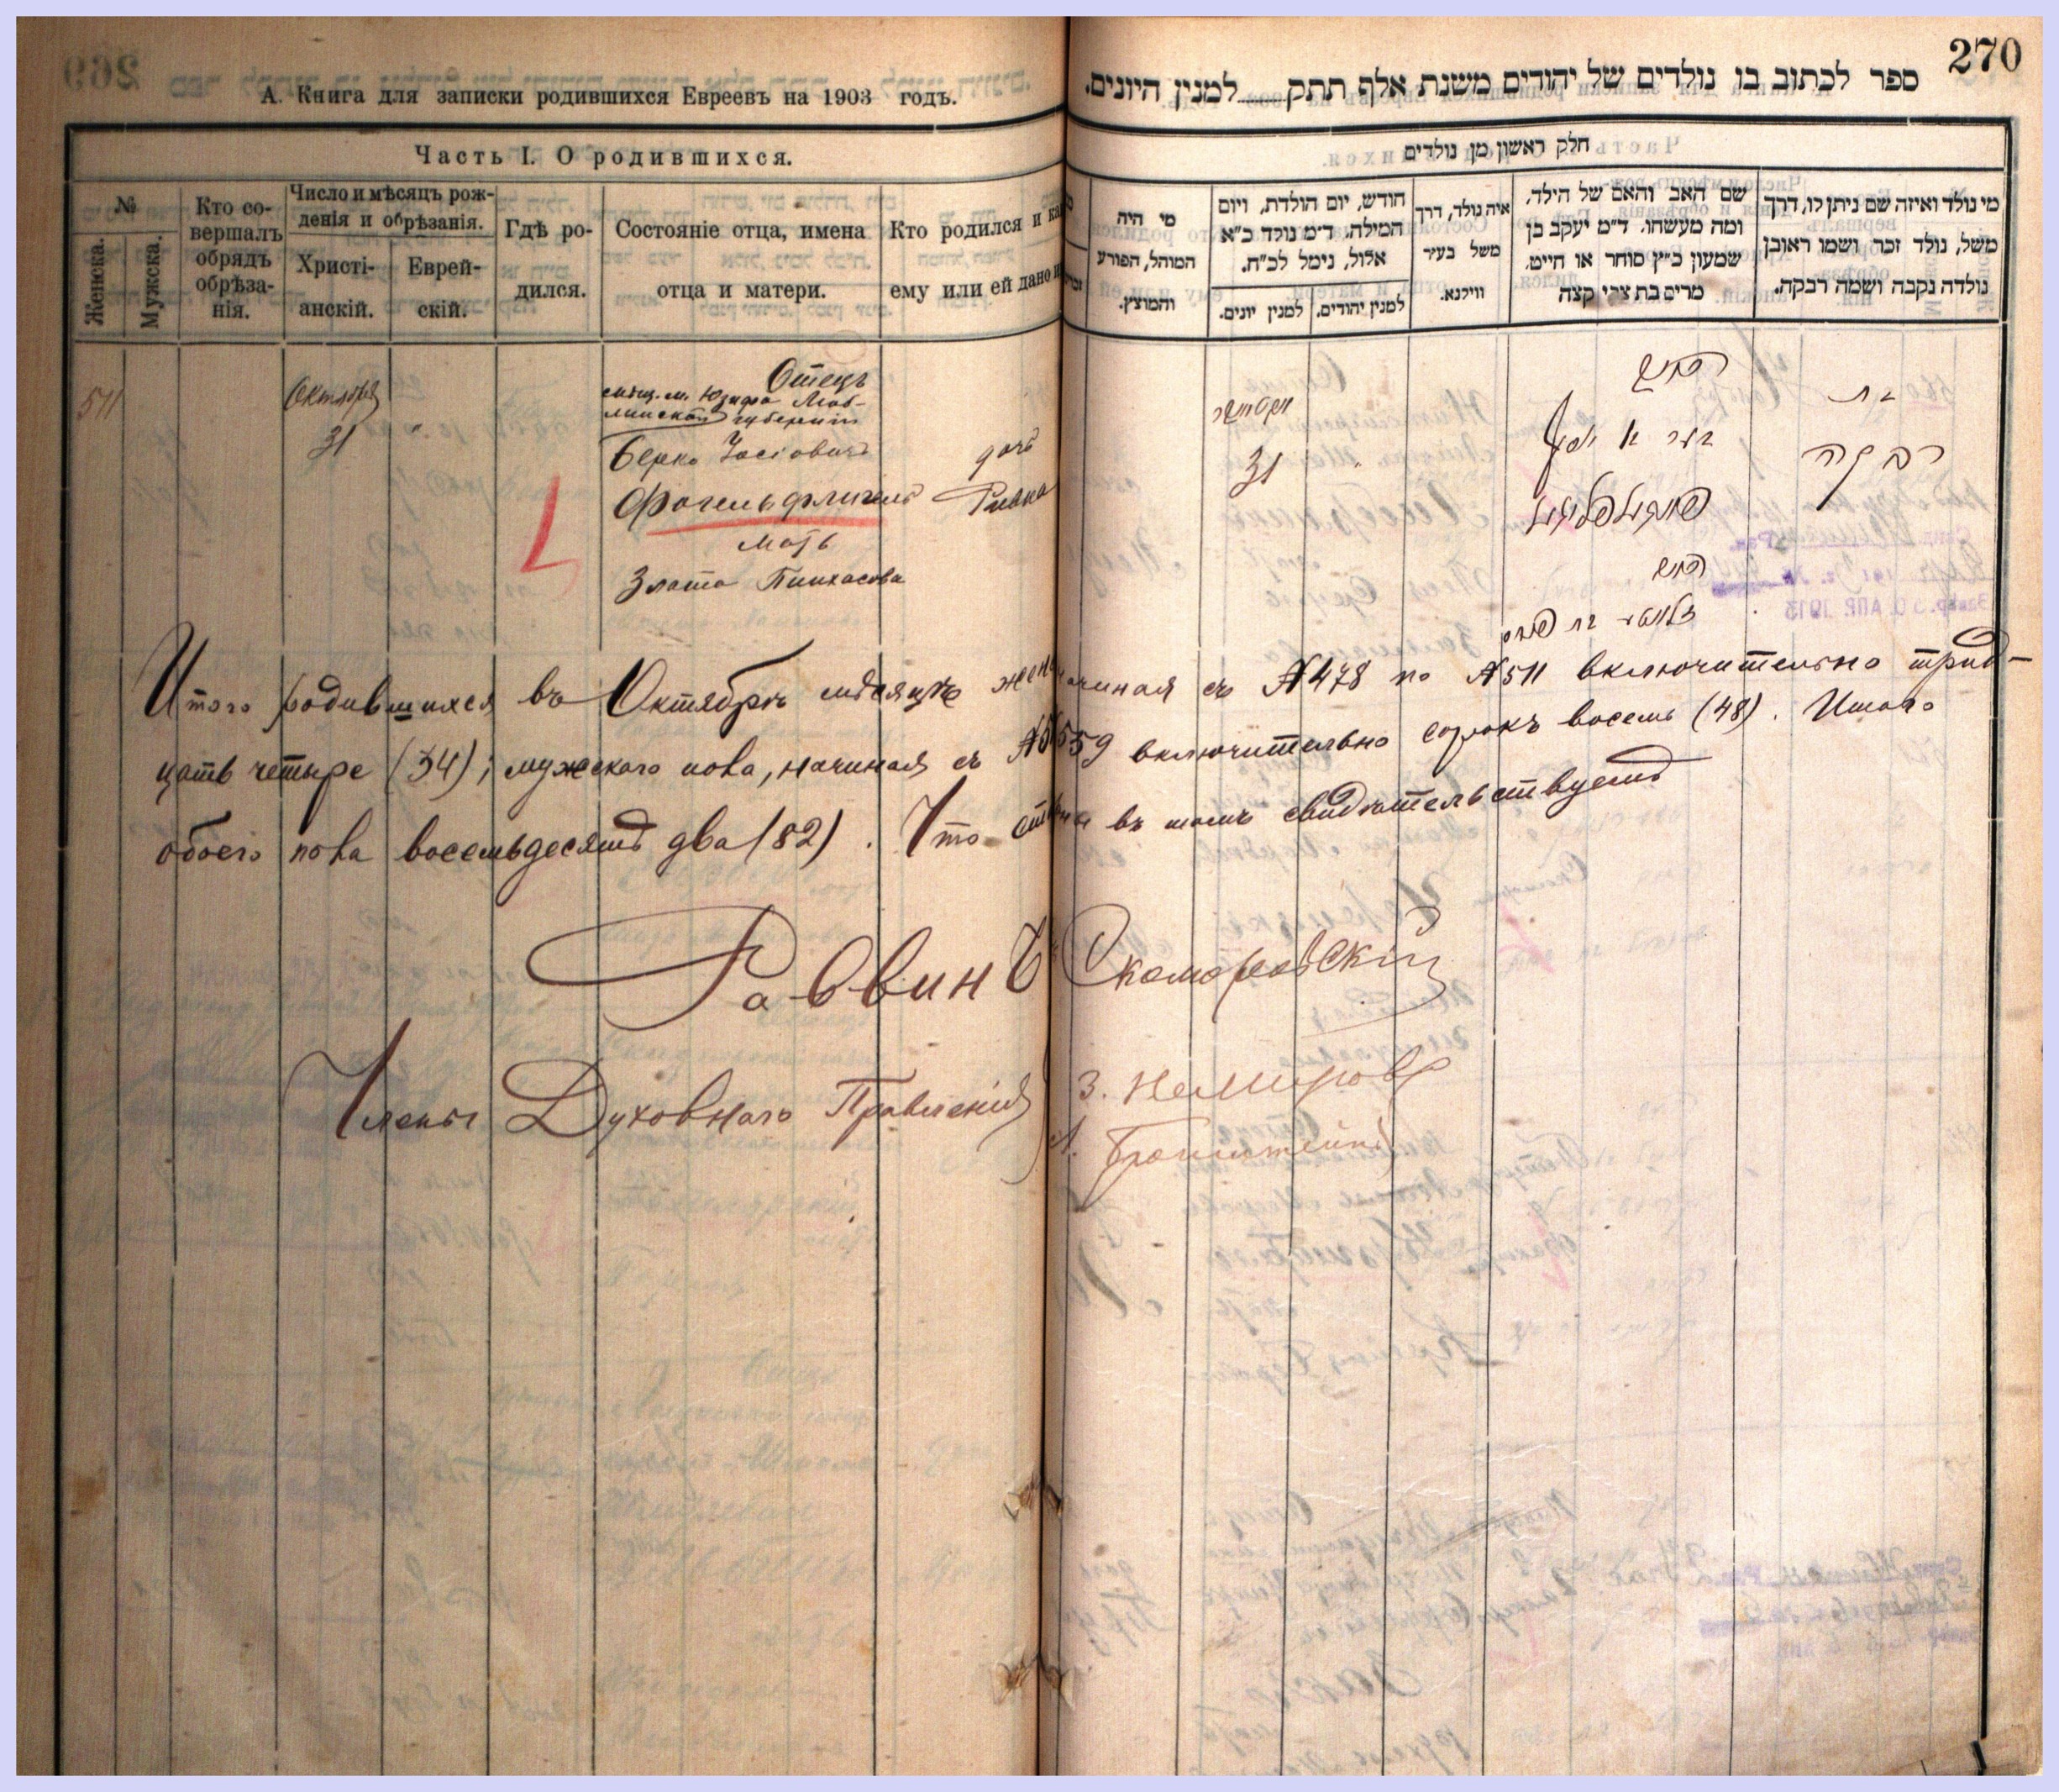 А. Книга для записки родившихся Евреевъ на 1903 годъ.
Часть I. О родившихся.
№
Женска.
Мужска.
Кто со-
вершалъ
обрядъ
обрѣза-
нія.
Число и мѣсяцъ рож-
денія и обрѣзанія.
Христі-
анскій.
Еврей-
скій.
Гдѣ ро-
дился.
Состояніе отца, имена
отца и матери.
Кто родился и
ему или ей дано
511
Октября
31
Отецъ
мѣщ. м. Юзефа Люб-
линской губерніи
Берко Іосіовичъ
Фогельфлигель
мать
Злата Пинхасова
дочь
Ривка
270
ספר לכתוב בו נולדים של יהודים משנת אלף תתק למנין היונים.
חלק ראשון מן נולדים
מי היה
המוהל, הפורע
והמוצץ.
חודש, יום הולדת, ויום
המילה. ד״מ נולד כ״א
אלול, נימל לכ״ח.
למנין יונים.
למנין יהודים.
איה נולד, דרך
משל בעיר
ווילנא.
שם האב והאם של הילד,
ומה מעשהו. ד״מ יעקב בן
שמעון כ״ץ סוחר או חייט,
מרים בת צבי קצה
מי נולד ואיזה שם ניתן לו, דרך
משל, נולד זכר ושמו ראובן
נולדה נקבה ושמה רבקה.
אקטאבר
31
האב
בער ב יוסף
פויגעלפליגעל
האם
זלאטא בת פנחס
בת
רבקה
Итого родившихся въ Октябрѣ мѣсяцѣ жен начиная съ №478 по №511 включительно трид-
цать четыре (34); мужского пола, начиная съ 559 включительно сорокъ восемь (48). Итого
обоего пола восемьдесятъ два (82). Что въ томъ свидѣтельствуетъ
Раввинъ Скоморовскій
Члены Духовнаго Правленія З. Немировъ
Бронштейнъ